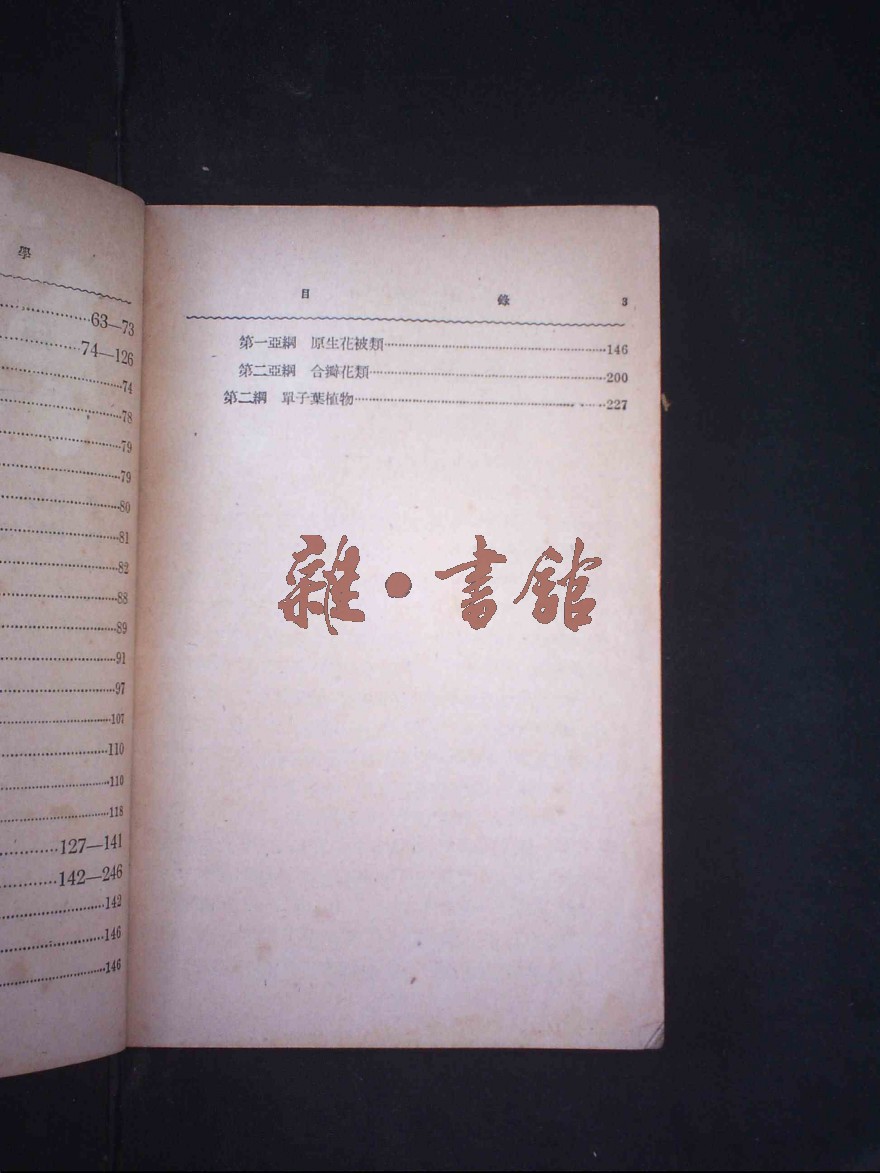 學
63—73
74—126
74
78
79
79
80
81
82
88
89
91
97
107
110
110
118
127—141
142—246
142
146
146
目 錄 3
第一亞綱 原生花被類……146
第二亞綱 合瓣花類……200
第二綱 單子葉植物……227
雜·書館